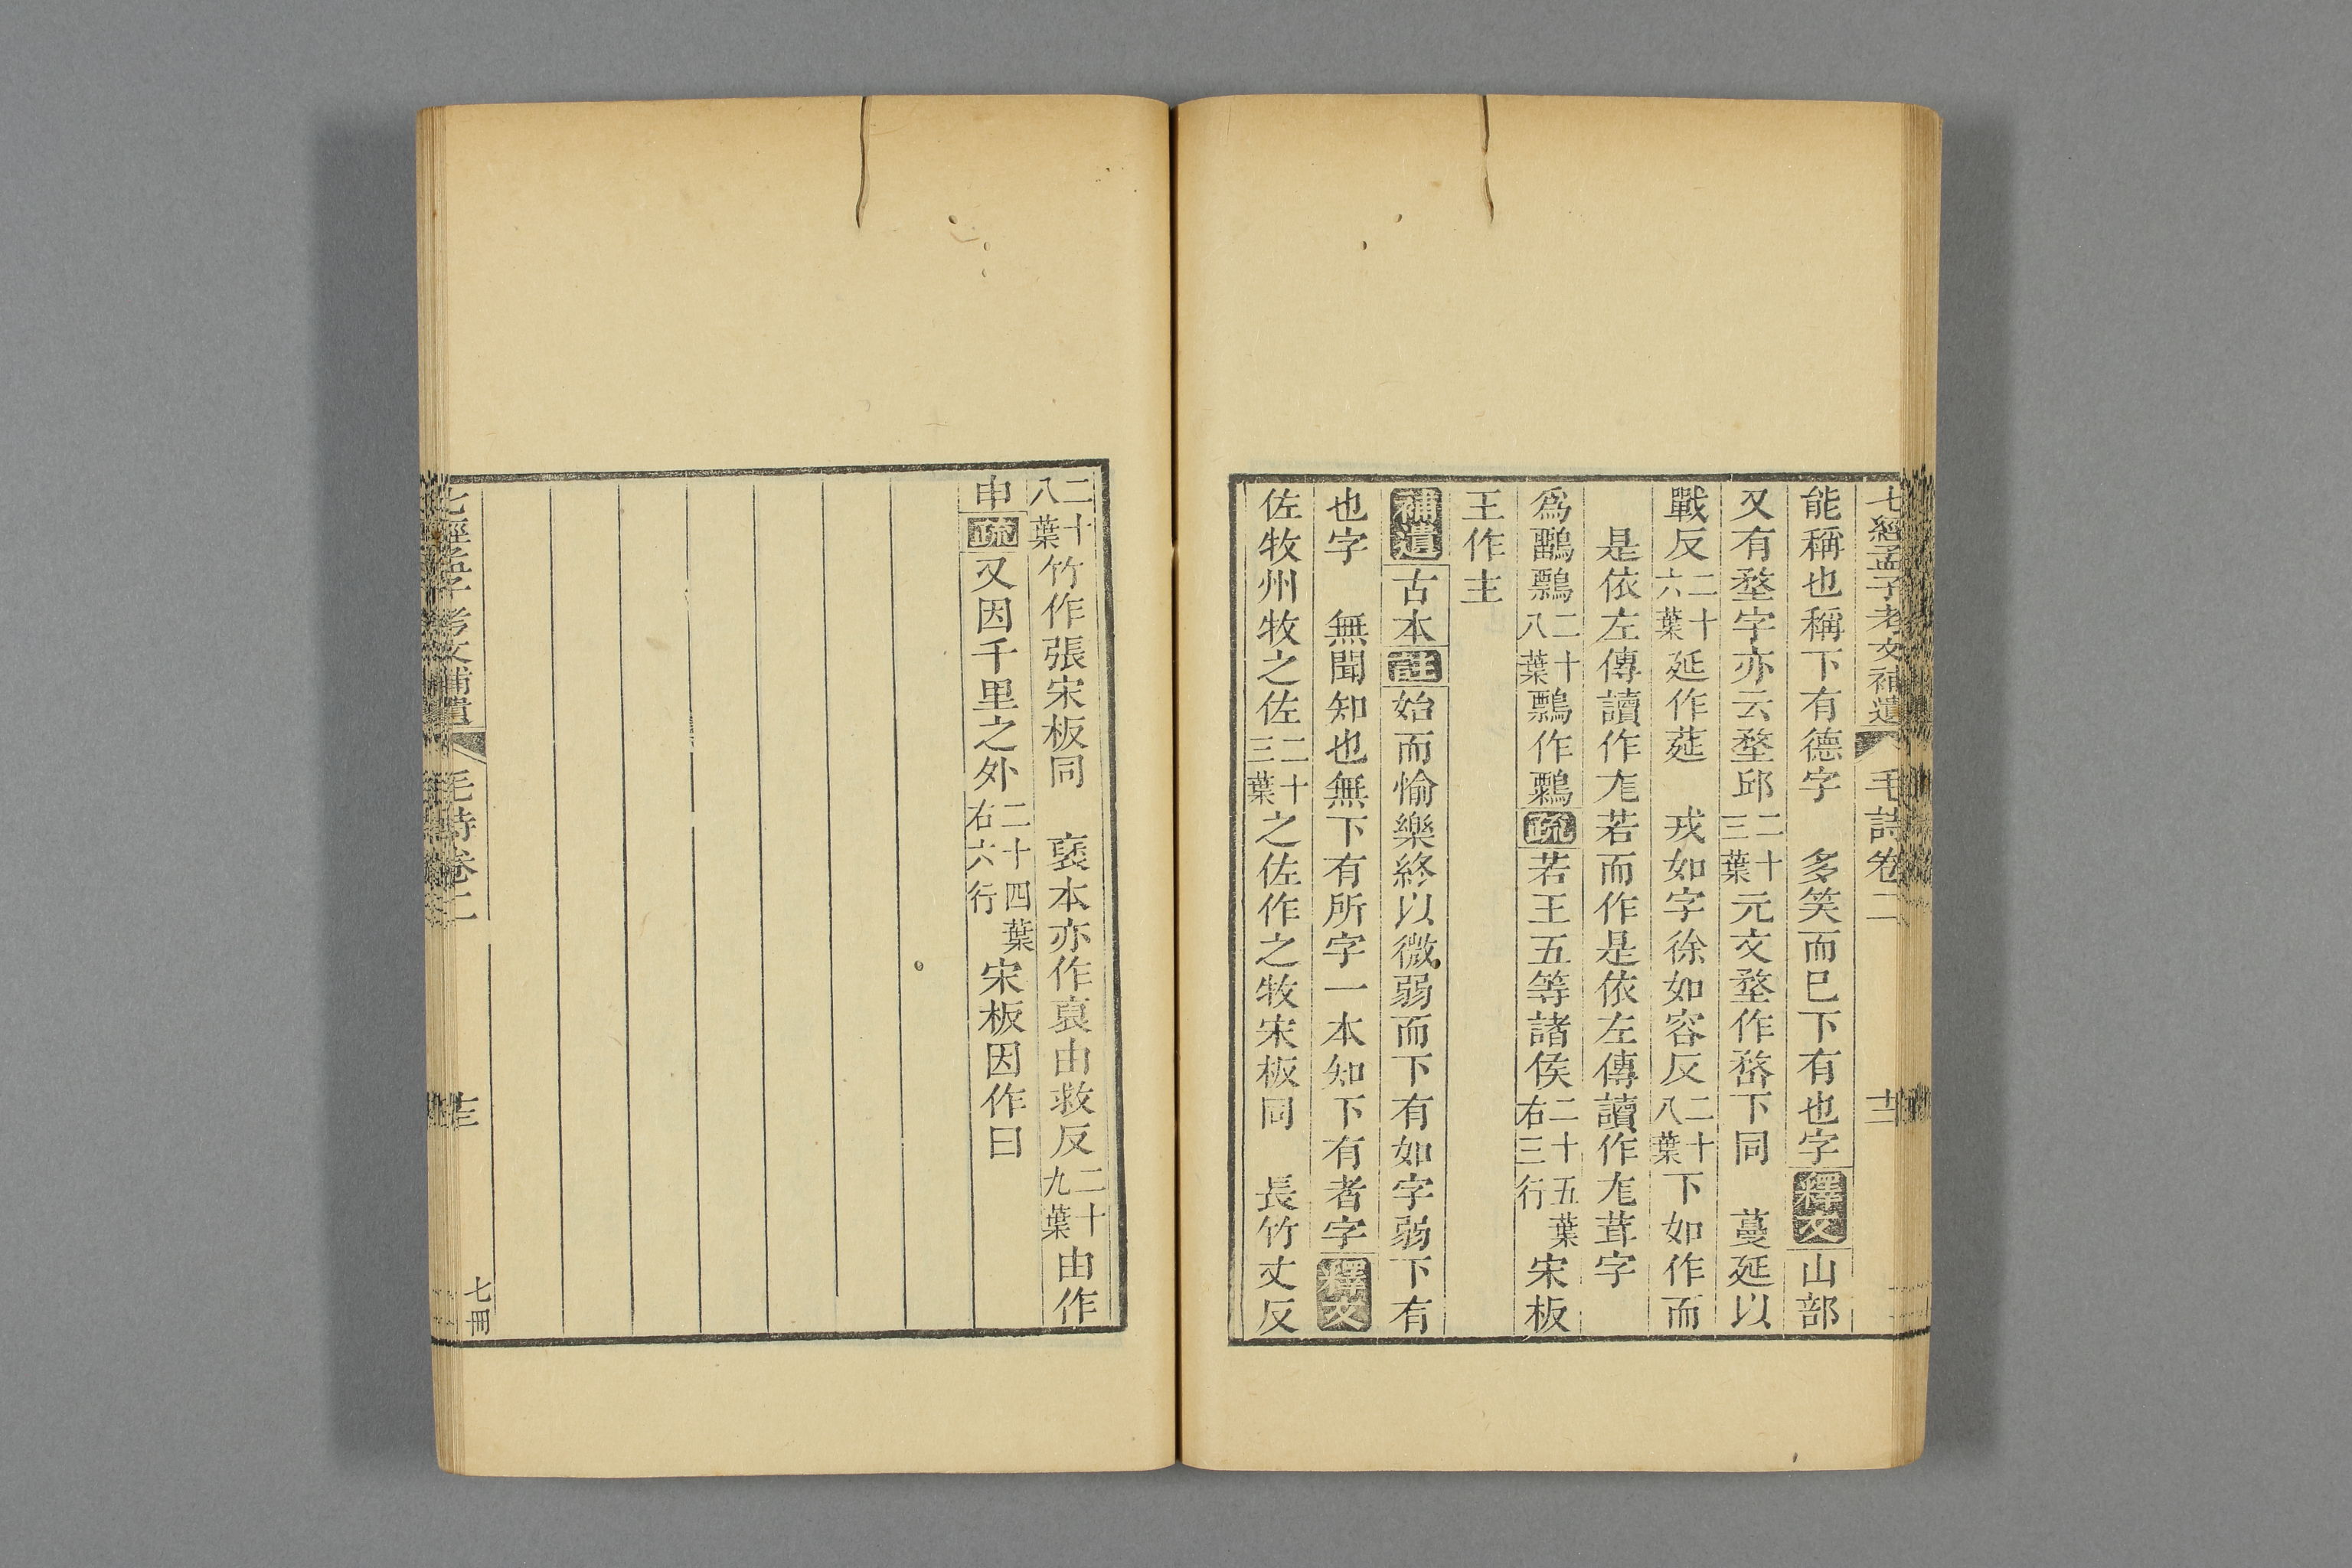 七經孟子考文補遺 毛詩卷二 十二
能稱也稱下有德字 多笑而巳下有也字釋文山部
又有堥字亦云堥邱二十三葉元文堥作嵍下同 蔓延以
戰反二十六葉延作莚 戎如字徐如容反二十八葉下如作而
是依左傳讀作尨若而作是依左傳讀作尨茸字
爲鸝鶹二十八葉鶹作鷅疏若王五等諸侯二十五葉右三行宋板
王作主
補遺古本註始而愉樂終以微弱而下有如字弱下有
也字 無聞知也無下有所字一本知下有者字釋文
佐牧州牧之佐二十三葉之佐作之牧宋板同 長竹丈反
二十八葉竹作張宋板同 褎本亦作裒由救反二十九葉由作
申疏又因千里之外二十四葉右六行宋板因作曰
七經孟子考文補遺 毛詩卷二 十三 七冊